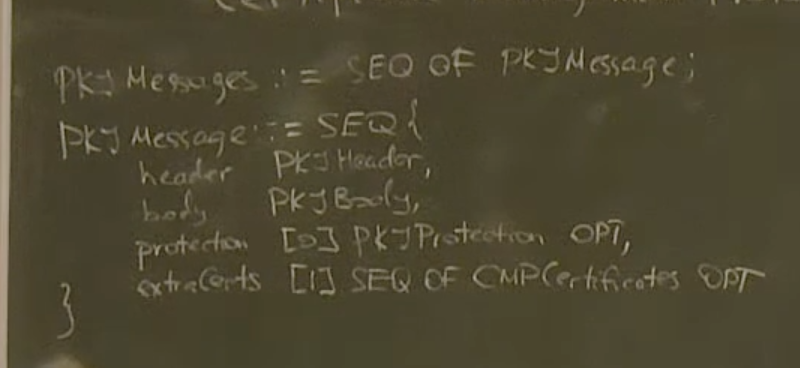 Certificate
PKIMessages ::= SEQ OF PKIMessage;
PKIMessage ::= SEQ {
header PKIHeader,
body PKIBody,
protection [0] PKIProtection OPT,
extraCerts [1] SEQ OF CMPCertificates OPT
}